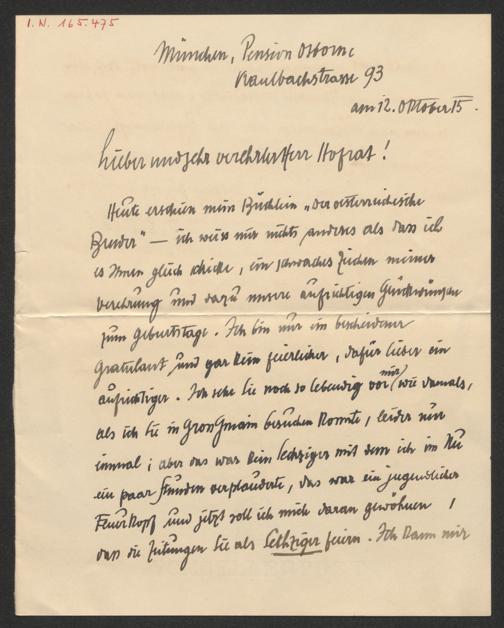 I.N. 165.475
München, Pension Osborne
Kaulbachstrasse 93
am 12. Oktober 15.
Lieber und sehr verehrter Herr Hofrat!
Heute erschien mein Büchlein „Der oesterreichische
Bruder" — ich weiss mir nichts anderes als dass ich
es Ihnen gleich schicke, ein schwaches Zeichen meiner
Verehrung und dazu unsere aufrichtigen Glückwünsche
zum Geburtstage. Ich bin nur ein bescheidener
Gratulant und gar kein feierlicher, dafür lieber ein
aufrichtiger. Ich sehe Sie noch so lebendig vor mir, wie damals,
als ich Sie in Grossgmain besuchen konnte, leider nur
einmal; aber das war kein Sechziger mit dem ich im Nu
ein paar Stunden verplauderte, das war ein jugendlicher
Feuerkopf und jetzt soll ich mich daran gewöhnen,
dass die Zeitungen Sie als Sechziger feiern. Ich kann mir